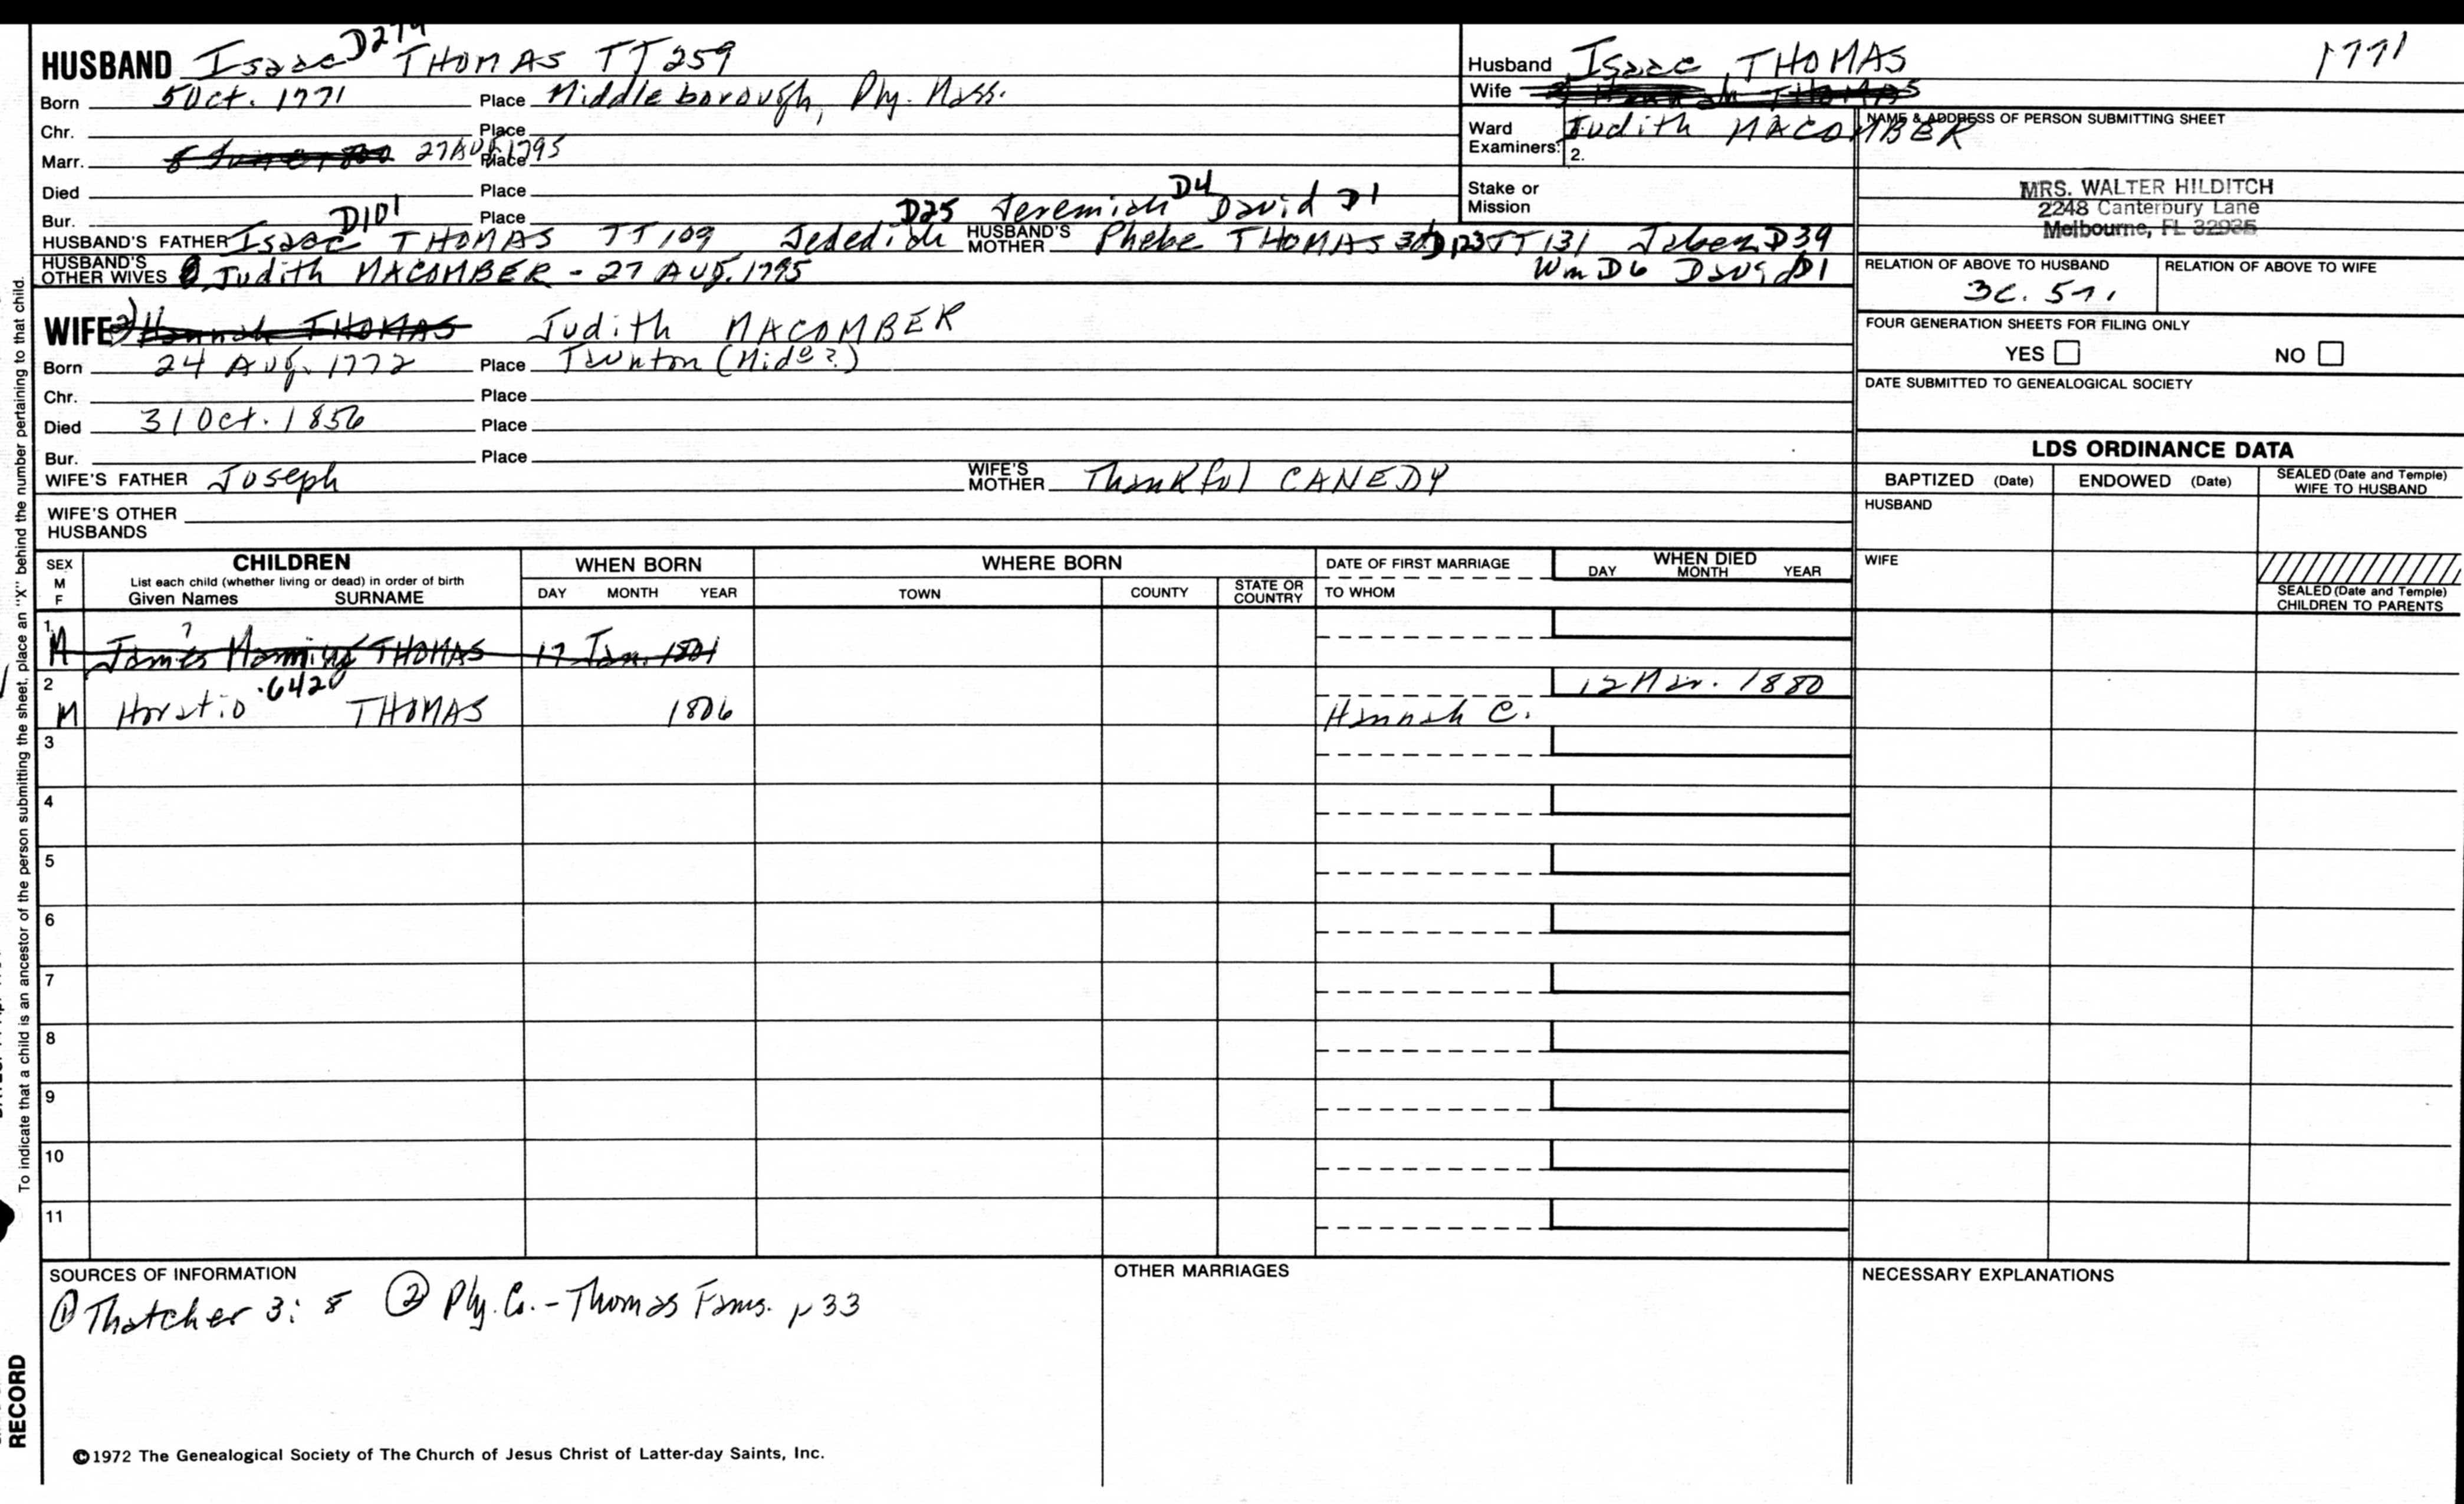 HUSBAND Isaac D279 THOMAS TT 259
Born 5 Oct. 1771 Place Middleborough, Ply. Mass.
Chr. Place
Marr. 27 AUG 1795 Place
Died Place
Bur. Place
D101 D25 Jeremiah D4 David D1
HUSBAND'S FATHER Isaac THOMAS TT 109 Jedediah HUSBAND'S MOTHER Phebe THOMAS 3d D123 TT 131 Jabez D39
HUSBAND'S OTHER WIVES Judith MACOMBER - 27 AUG. 1795 Wm D6 David D1
WIFE 2) Hannah THOMAS Judith MACOMBER
Born 24 AUG. 1772 Place Taunton (Mide?)
Chr. Place
Died 31 Oct. 1856 Place
Bur. Place
WIFE'S FATHER Joseph WIFE'S MOTHER Thankful CANEDY
WIFE'S OTHER HUSBANDS
Husband Isaac THOMAS 1771
Wife Hannah THOMAS
Ward Judith MACOMBER
Examiners: 2.
Stake or Mission
NAME & ADDRESS OF PERSON SUBMITTING SHEET
MRS. WALTER HILDITCH
2248 Canterbury Lane
Melbourne, FL 32935
RELATION OF ABOVE TO HUSBAND RELATION OF ABOVE TO WIFE
3C. 5r.
FOUR GENERATION SHEETS FOR FILING ONLY
YES NO
DATE SUBMITTED TO GENEALOGICAL SOCIETY
LDS ORDINANCE DATA
BAPTIZED (Date) ENDOWED (Date) SEALED (Date and Temple) WIFE TO HUSBAND
HUSBAND
WIFE
SEALED (Date and Temple) CHILDREN TO PARENTS
SEX M F CHILDREN WHEN BORN WHERE BORN DATE OF FIRST MARRIAGE WHEN DIED
List each child (whether living or dead) in order of birth
Given Names SURNAME DAY MONTH YEAR TOWN COUNTY STATE OR COUNTRY TO WHOM DAY MONTH YEAR
1 M James Manning ? THOMAS 17 Jan. 1801
2 M Horatio .6420 THOMAS 1806 Hannah C. 12 Mar. 1880
3
4
5
6
7
8
9
10
11
SOURCES OF INFORMATION
① Thatcher 3: 8 ② Ply. Co. - Thomas Fams. p 33
OTHER MARRIAGES
NECESSARY EXPLANATIONS
©1972 The Genealogical Society of The Church of Jesus Christ of Latter-day Saints, Inc.
To indicate that a child is an ancestor of the person submitting the sheet, place an "X" behind the number pertaining to that child.
RECORD